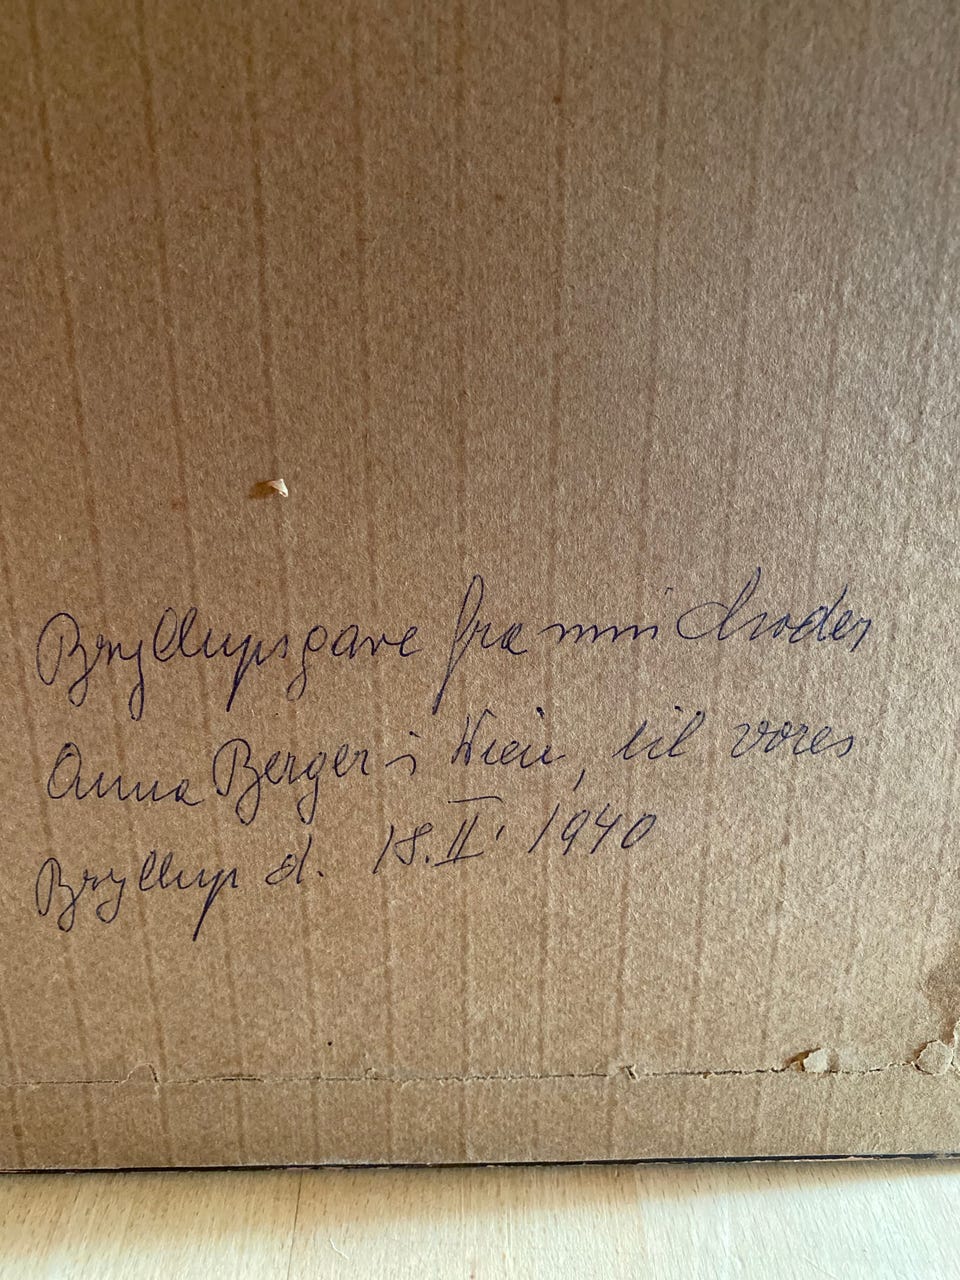 Bryllupsgave fra min Moder
Anna Berger i Wien, til vores
Bryllup d. 18. II. 1940